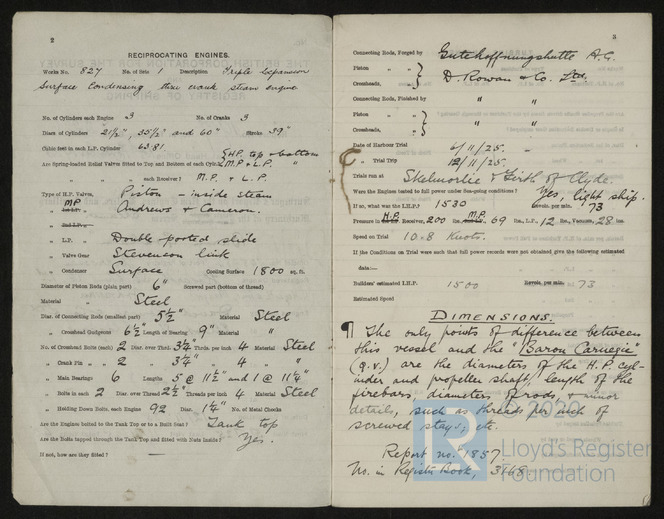 2
RECIPROCATING ENGINES.
Works No. 827 No. of Sets 1 Description Triple Expansion
Surface Condensing three crank steam engine
No. of Cylinders each Engine 3 No. of Cranks 3
Diars of Cylinders 21½", 35½" and 60" Stroke 39"
Cubic feet in each L.P. Cylinder 63.81
Are Spring-loaded Relief Valves fitted to Top and Bottom of each Cylr. { H.P. top & bottom M.P. & L.P. "
" " each Receiver? M.P. & L.P.
Type of H.P. Valves, Piston - inside steam
" M.P. Andrews & Cameron.
" 2nd I.P. "
" L.P. Double ported slide
" Valve Gear Stevenson link
" Condenser Surface Cooling Surface 1800 sq. ft.
Diameter of Piston Rods (plain part) 6" Screwed part (bottom of thread)
Material " Steel
Diar. of Connecting Rods (smallest part) 5½" Material Steel
" Crosshead Gudgeons 6½" Length of Bearing 9" Material "
No. of Crosshead Bolts (each) 2 Diar. over Thrd. 3¼" Thrds. per inch 4 Material Steel
" Crank Pin " " 2 " 3¼" " 4 " "
" Main Bearings 6 Lengths 5 @ 11½" and 1 @ 11¼"
" Bolts in each 2 Diar. over Thread 2½" Threads per inch 4 Material Steel
" Holding Down Bolts, each Engine 92 Diar. 1¼" No. of Metal Chocks
Are the Engines bolted to the Tank Top or to a Built Seat? Tank top
Are the Bolts tapped through the Tank Top and fitted with Nuts inside? Yes.
If not, how are they fitted?
3
Connecting Rods, Forged by Gutehoffnungshutte A.G.
Piston " " } D. Rowan & Co. Ltd.
Crossheads, " "
Connecting Rods, Finished by " "
Piston " " } " "
Crossheads, " "
Date of Harbour Trial 6/11/25.
" Trial Trip 12/11/25.
Trials run at Skelmorlie & Firth of Clyde.
Were the Engines tested to full power under Sea-going conditions? Yes, light ship.
If so, what was the I.H.P.? 1530 Revols. per min. 73
Pressure in H.P. Receiver, 200 lbs., M.P. 69 lbs., L.P., 12 lbs., Vacuum, 28 ins.
Speed on Trial 10.8 Knots.
If the Conditions on Trial were such that full power records were not obtained give the following estimated
data:—
Builders' estimated I.H.P. 1500 Revols. per min. 73
Estimated Speed
DIMENSIONS.
¶ The only points of difference between
this vessel and the "Baron Carnegie"
(q.v.) are the diameters of the H.P. cyl-
inder and propeller shaft, length of the
firebars, diameters of rods, & minor
details, such as threads per inch of
screwed stays, etc.
Report no. 1857.
No. in Register Book, 3168
2020
LR
Lloyd's Register
Foundation